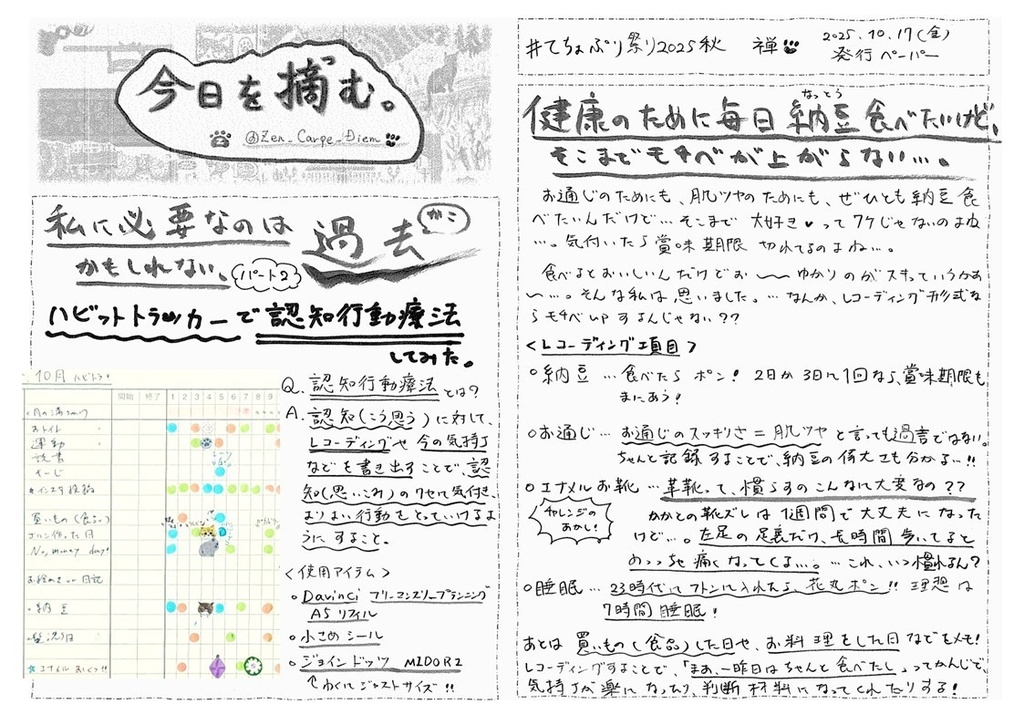 今日を摘む。
@Zen_Carpe_Diem
私に必要なのは過去かこ
かもしれない。パート2
ハビットトラッカーで認知行動療法
してみた。
10月 ハビトラ!
開始 終了 1 2 3 4 5 6 7 8 9
おトイレ
運動
読書
買いもの(食品)
ゴハン作った日
No, money day!
納豆
Q. 認知行動療法とは?
A. 認知(こう思う)に対して、
レコーディングや今の気持ち
などを書き出すことで、認
知(思いこみ)のクセに気付き、
よりよい行動をとっていけるよ
うにすること。
<使用アイテム>
○Davinci フリーマンスリープランニング
A5リフィル
○小さめシール
○ジョインドッツ MIDORI
↑わくにジャストサイズ!!
#てちょぷり祭り2025秋 禅 2025.10.17(金)
発行ペーパー
なっとう
健康のために毎日納豆食べたいけど、
そこまでモチベが上がらない…。
お通じのためにも、肌ツヤのためにも、ぜひとも納豆食
べたいんだけど…そこまで大好き♥ってワケじゃないのよね
…。気付いたら賞味期限切れてるのよね…。
食べるとおいしいんだけどお〜〜ゆかりのがスキっていうかあ
〜…。そんな私は思いました。…なんか、レコーディング形式な
らモチベupするんじゃない??
<レコーディング項目>
○納豆…食べたらポン! 2日か3日に1回なら、賞味期限も
まにあう!
○お通じ…お通じのスッキリさ=肌ツヤと言っても過言ではない。
ちゃんと記録することで、納豆の偉大さも分かる…!!
○エナメルお靴…革靴って、慣らすのこんなに大変なの??
チャレンジのあかし!
かかとの靴ズレは1週間で大丈夫になった
けど…。左足の足裏だけ、長時間歩いてると
めっっちゃ痛くなってくる…。…これ、いつ慣れるん?
○睡眠…23時代にフトンに入れたら、花丸ポン!! 理想は
7時間睡眠!
あとは買いもの(食品)した日や、お料理をした日などをメモ!
レコーディングすることで、「まあ、一昨日はちゃんと食べたし」ってかんじで、
気持ちが楽になったり、判断材料になってくれたりする!